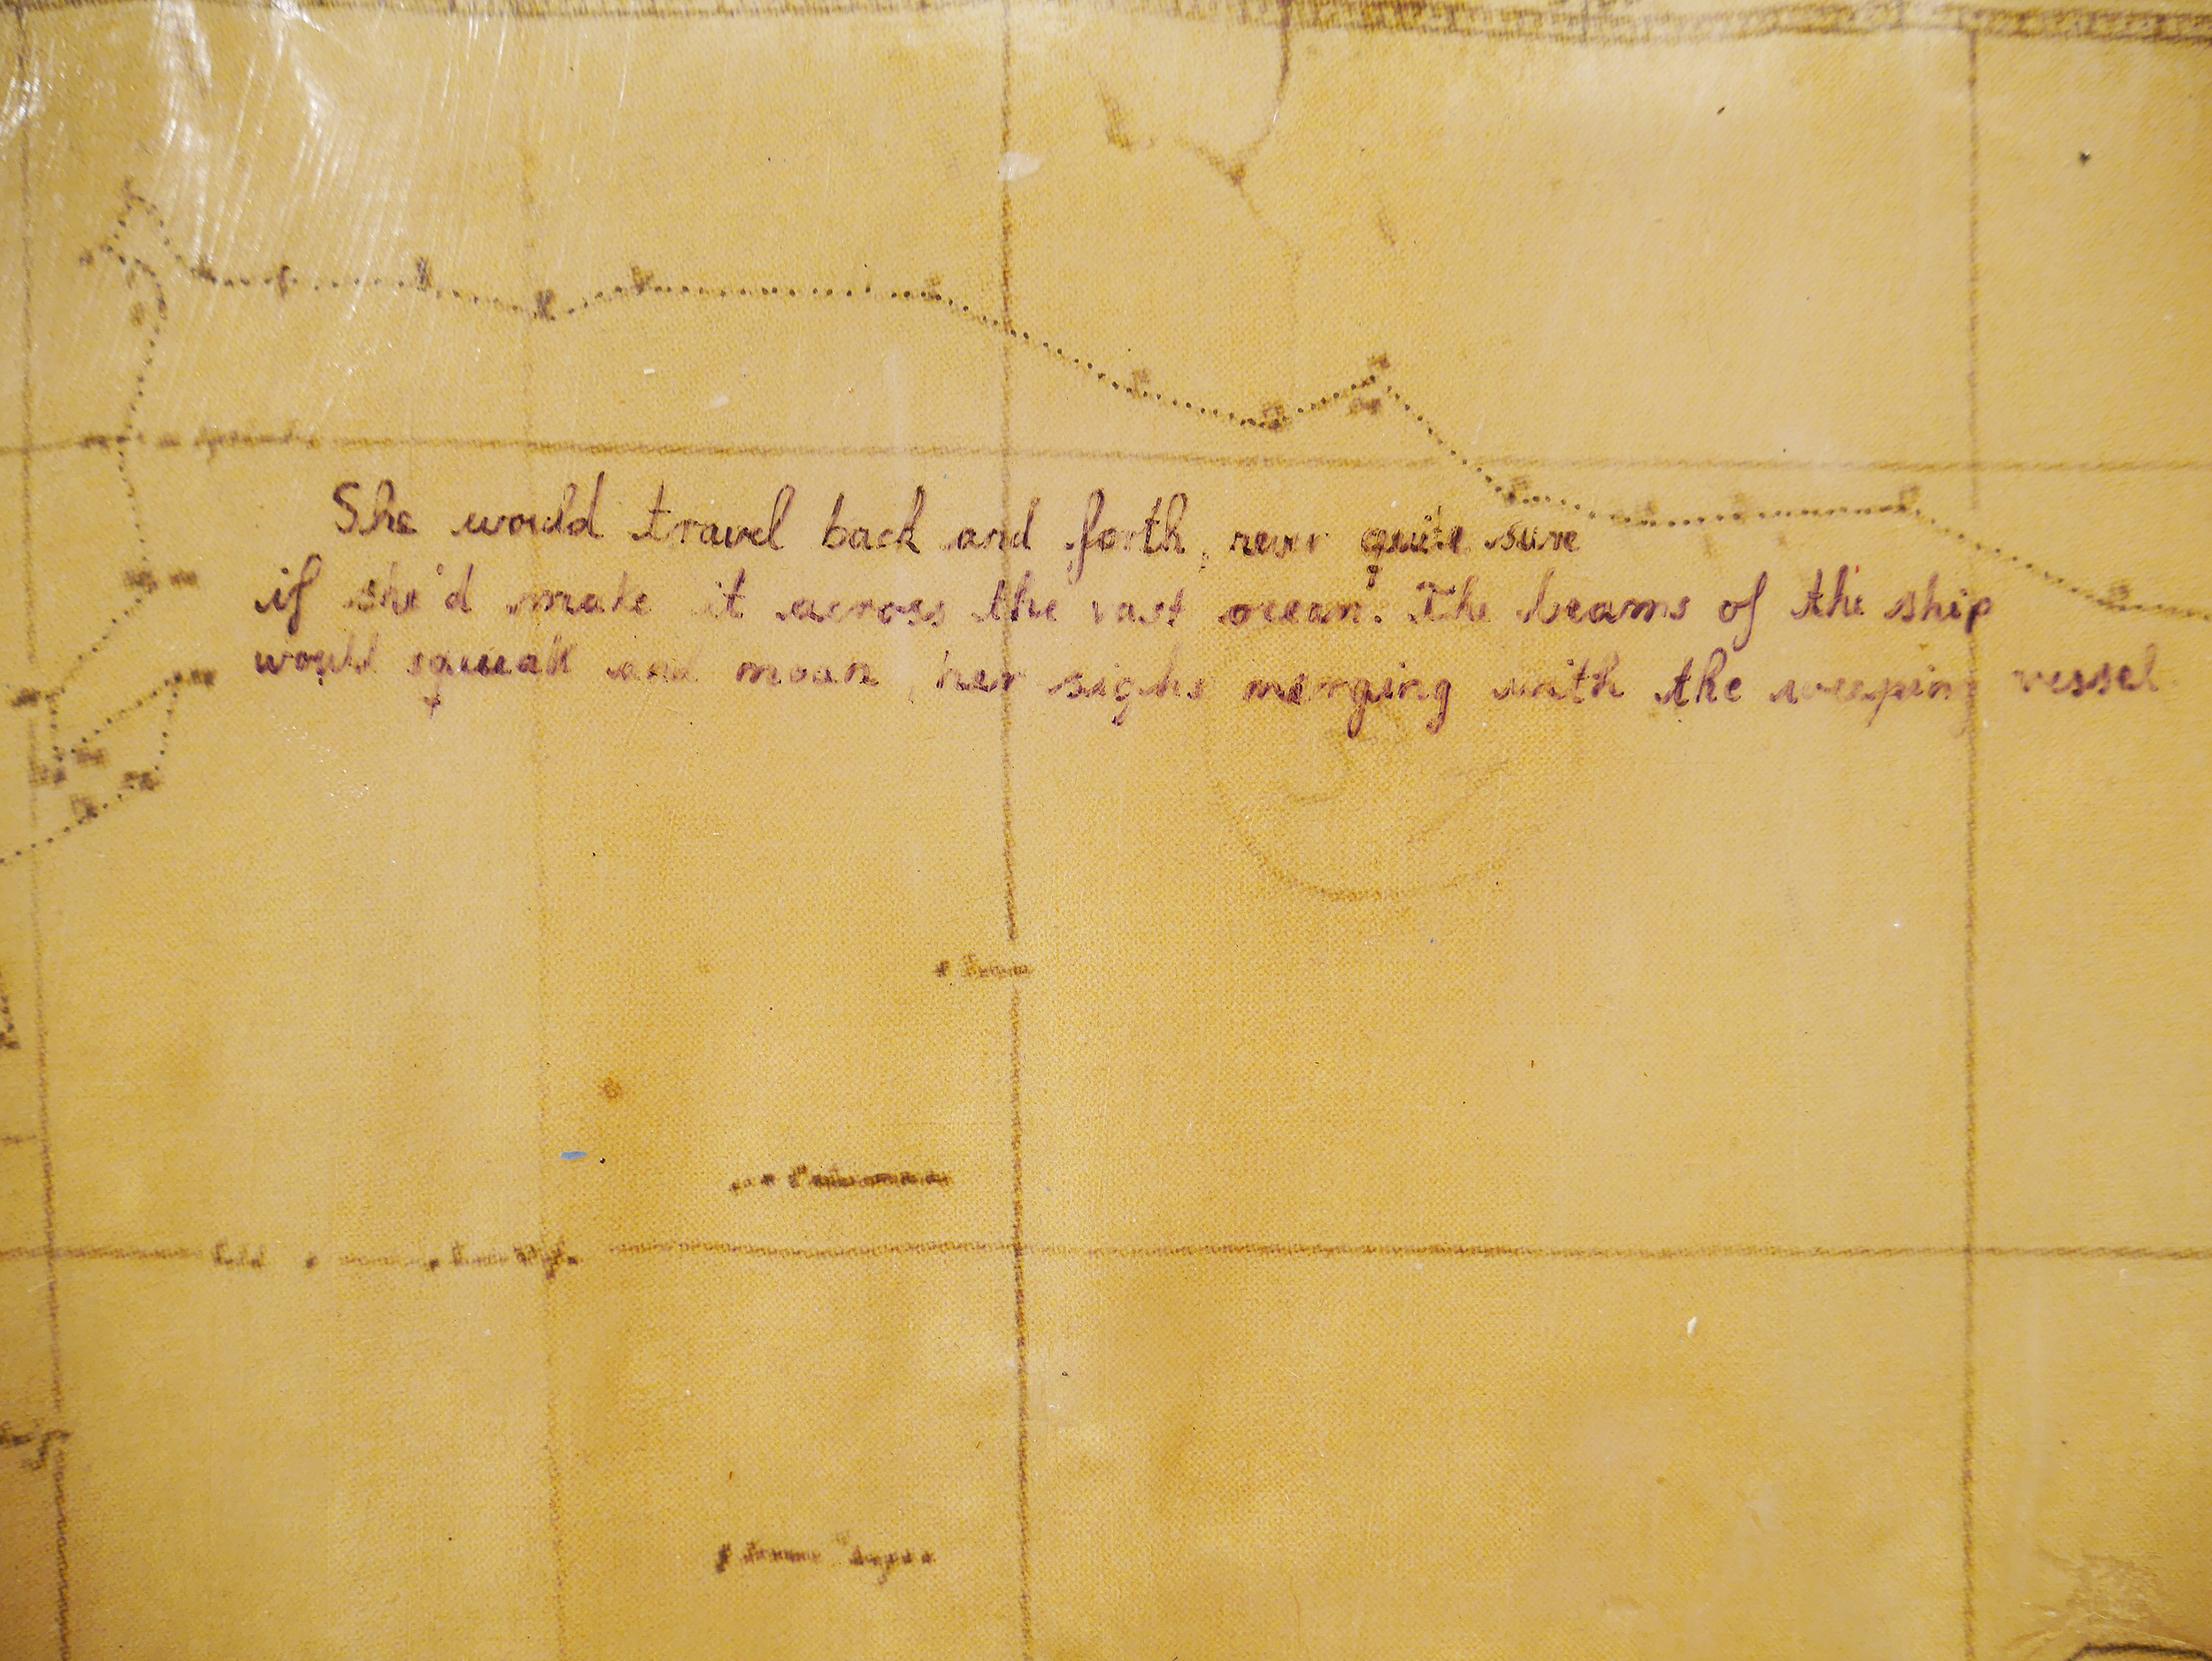 She would travel back and forth, never quite sure
if she'd make it across the vast ocean. The beams of the ship
would squeak and moan, her sighs merging with the weeping vessel